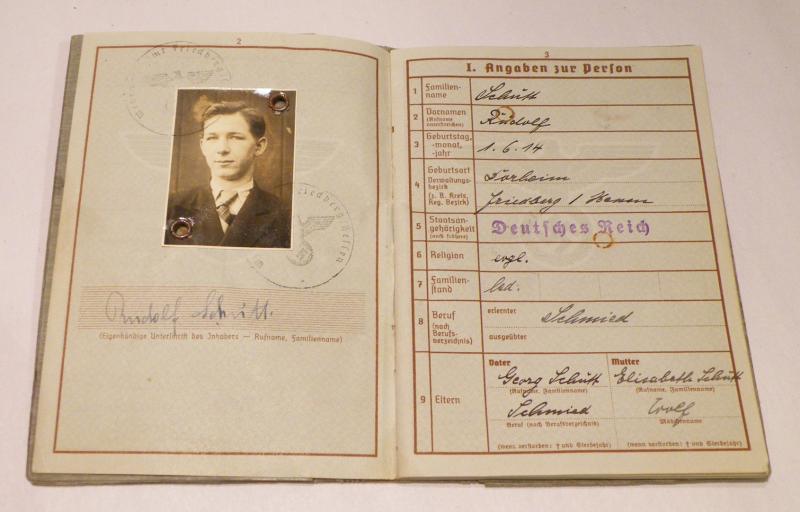 2
Rudolf Schütt.
(Eigenhändige Unterschrift des Inhabers — Rufname, Familienname)
3
I. Angaben zur Person
1 Familien-
name
Schütt
2 Vornamen
(Rufname
unterstreichen)
Rudolf
3 Geburtstag,
-monat,
-jahr
1.6.14
4 Geburtsort
Verwaltungs-
bezirk
(z. B. Kreis,
Reg. Bezirk)
Dorheim
Friedberg / Hessen
5 Staatsan-
gehörigkeit
(auch frühere)
Deutsches Reich
6 Religion
evgl.
7 Familien-
stand
led.
8 Beruf
(nach
Berufs-
verzeichnis)
erlernter
Schmied
ausgeübter
9 Eltern
Vater
Georg Schütt
(Rufname, Familienname)
Schmied
Beruf (nach Berufsverzeichnis)
(wenn verstorben: † und Sterbejahr)
Mutter
Elisabeth Schütt
(Rufname, Familienname)
Wolf
Mädchenname
(wenn verstorben: † und Sterbejahr)